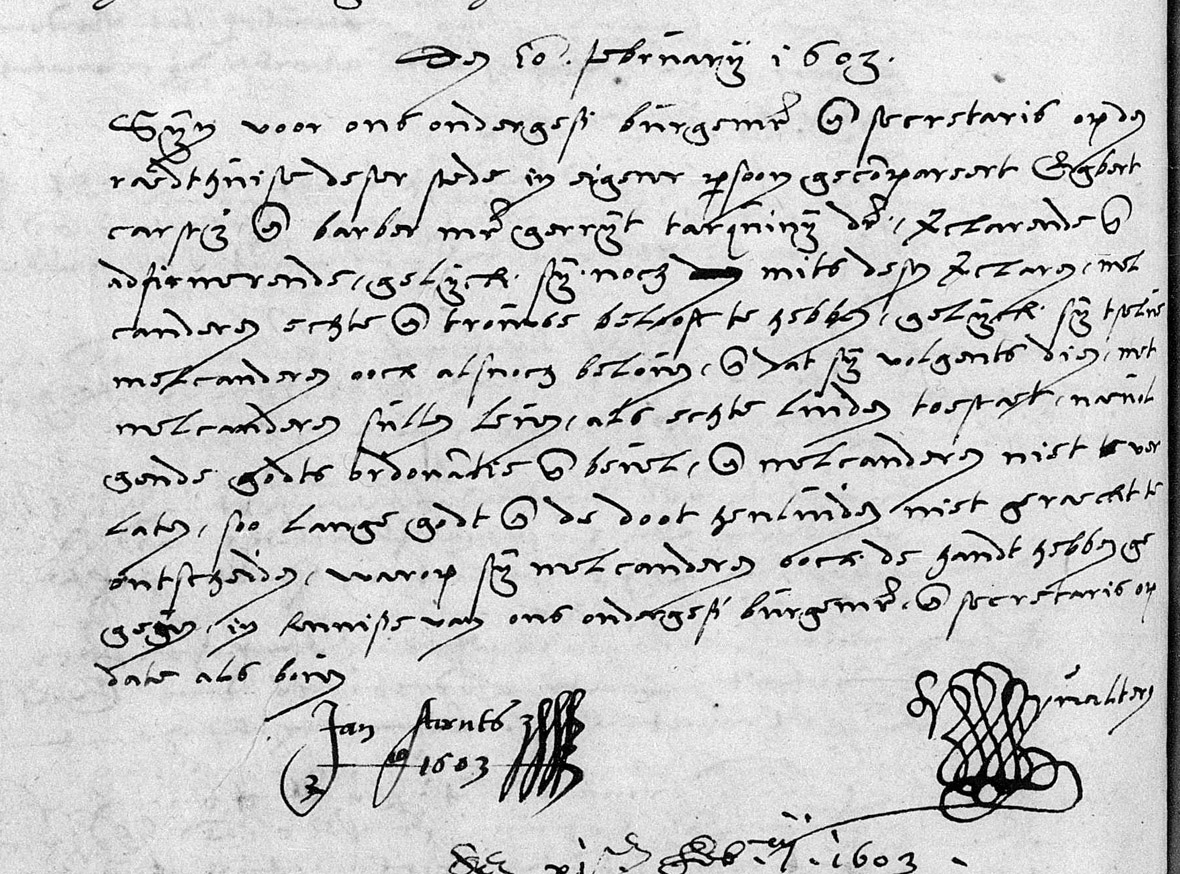 Den 10. februarij 1603.
Sijn voor ons ondergesz burgemr en secretaris op den
raedthuise deser stede in eigener psoon gecompareert Egbert
carsz en barber mr gerrijt tarquinij dr, verclarende en
adfirmerende, gelijck sij noch mits desen verclaren, mel
canderen echte en trouwe belooft te hebben, gelijck sij tselve
melcanderen oock alsnoch beloven, en dat sij volgents dien, met
melcanderen sullen leven, als echte luiden toestaet, navol
gende godts ordonatie en bevel, en melcanderen niet te ver
laten, soo lange godt en de doot henluiden niet geraeckt te
ontscheiden, warop sij melcanderen oock de handt hebben ge
geven, in kennisse van ons ondergesz burgemr en secretaris op
date als boven
Jan
1603
febrij 1603.